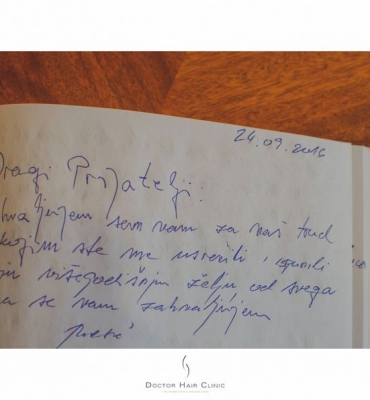 24.09.2016
Dragi Prijatelji.
sam vam za vaš trud
ste me usrećili, ispunili
višegodišnju želju od svega
a se vam zahvaljujem
DOCTOR HAIR CLINIC